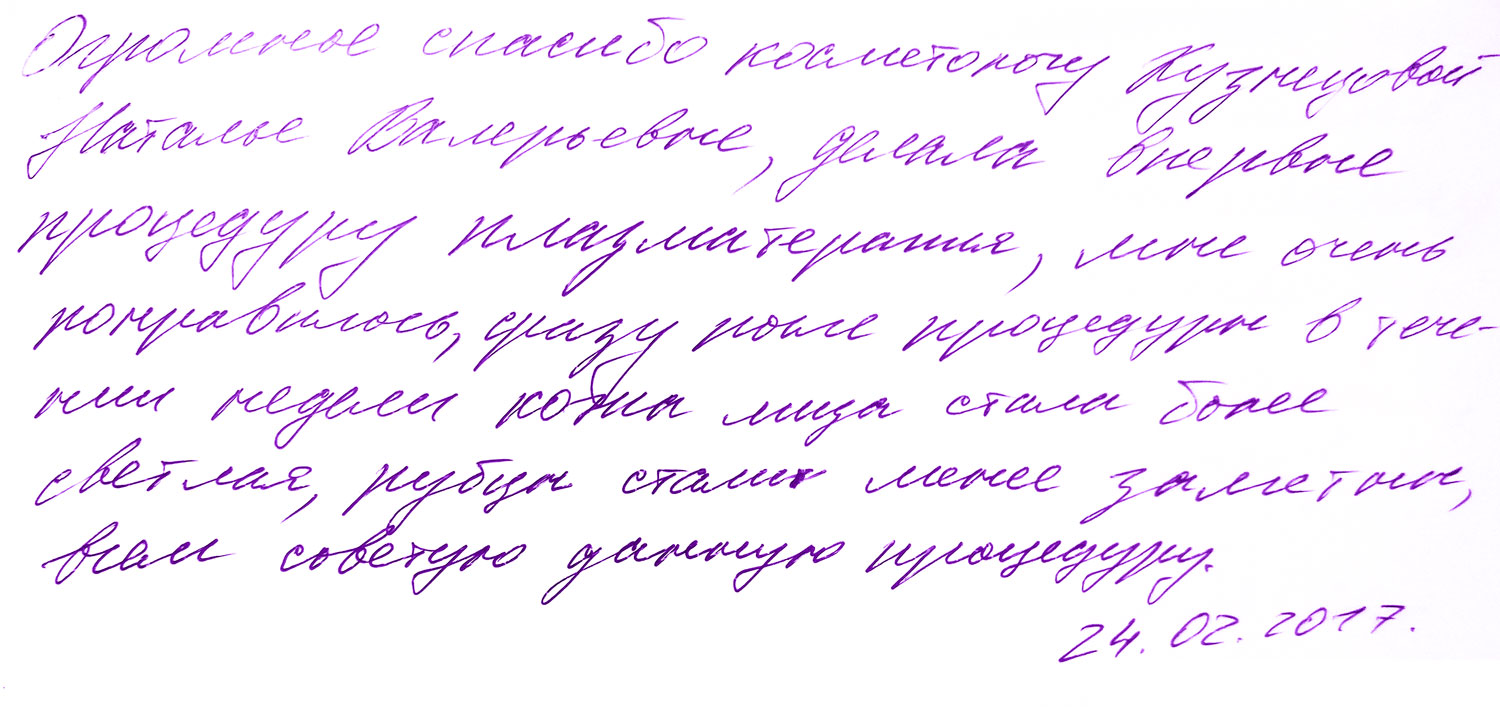 Огромное спасибо косметологу Кузнецовой
Наталье Валерьевне, делала впервые
процедуру плазматерапия, мне очень
понравилось, сразу после процедуры в тече-
нии недели кожа лица стала более
светлая, рубцы стали менее заметны,
всем советую данную процедуру.
24.02.2017.